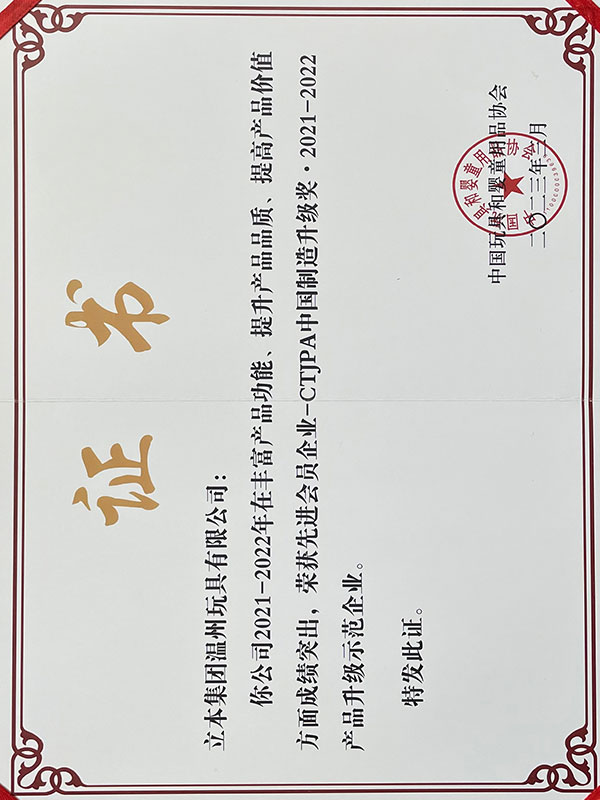 证书
立本集团温州玩具有限公司：
你公司2021-2022年在丰富产品功能、提升产品品质、提高产品价值
方面成绩突出，荣获先进会员企业-CTJPA中国制造升级奖·2021-2022
产品升级示范企业。
特发此证。
中国玩具和婴童用品协会
二〇二三年三月